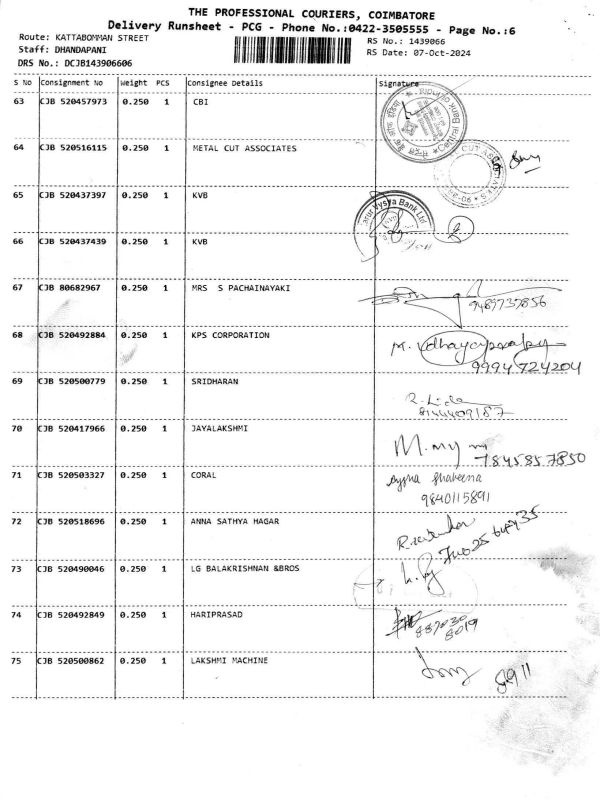 THE PROFESSIONAL COURIERS, COIMBATORE
Delivery Runsheet - PCG - Phone No.:0422-3505555 - Page No.:6
Route: KATTABOMMAN STREET
RS No.: 1439066
Staff: DHANDAPANI
RS Date: 07-Oct-2024
DRS No.: DCJB143906606
S No Consignment No Weight PCS Consignee Details Signature
63 CJB 520457973 0.250 1 CBI
64 CJB 520516115 0.250 1 METAL CUT ASSOCIATES
65 CJB 520437397 0.250 1 KVB
66 CJB 520437439 0.250 1 KVB
67 CJB 80682967 0.250 1 MRS S PACHAINAYAKI
9489737856
68 CJB 520492884 0.250 1 KPS CORPORATION
9994724204
69 CJB 520500779 0.250 1 SRIDHARAN
8144409187
70 CJB 520417966 0.250 1 JAYALAKSHMI
7845857850
71 CJB 520503327 0.250 1 CORAL
9840115891
72 CJB 520518696 0.250 1 ANNA SATHYA HAGAR
73 CJB 520490046 0.250 1 LG BALAKRISHNAN &BROS
74 CJB 520492849 0.250 1 HARIPRASAD
887030
8019
75 CJB 520500862 0.250 1 LAKSHMI MACHINE